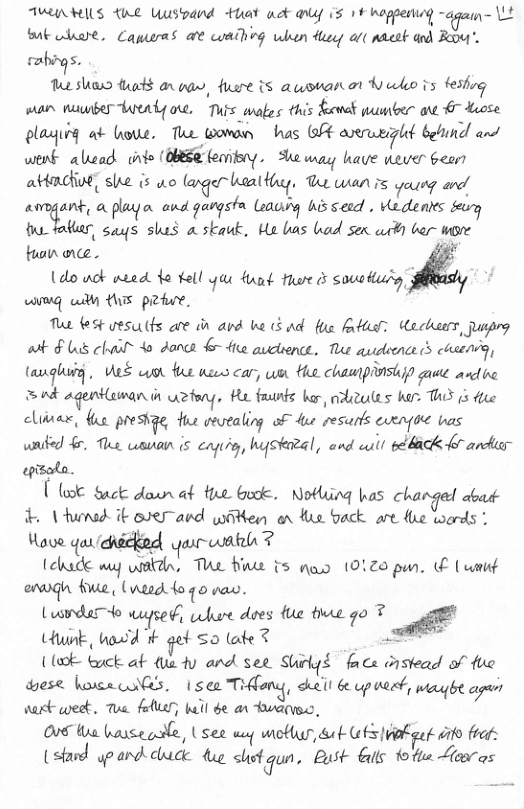 Then tells the husband that not only is it happening -again-
but where. Cameras are waiting when they all meet and BOOM:
ratings.
The show that's on now, there is a woman on tv who is testing
man number twenty one. This makes this format number one for those
playing at home. The woman has left overweight behind and
went ahead into obese territory. She may have never been
attractive, she is no larger healthy. The man is young and
arrogant, a playa and gangsta leaving his seed. He denies being
the father, says she's a skank. He has had sex with her more
than once.
I do not need to tell you that there is something seriously
wrong with this picture.
The test results are in and he is not the father. He cheers, jumping
out of his chair to dance for the audience. The audience is cheering,
laughing. He's won the new car, won the championship game and he
is not a gentleman in victory. He taunts her, ridicules her. This is the
climax, the prestige, the revealing of the results everyone has
waited for. The woman is crying, hysterical, and will be back for another
episode.
I look back down at the book. Nothing has changed about
it. I turned it over and written on the back are the words:
Have you checked your watch?
I check my watch. The time is now 10:20 pm. If I want
enough time, I need to go now.
I wonder to myself, where does the time go?
I think, how'd it get so late?
I look back at the tv and see Shirly's face instead of the
obese housewife's. I see Tiffany, she'll be up next, maybe again
next week. The father, he'll be on tomorrow.
Over the housewife, I see my mother, but let's not get into that.
I stand up and check the shotgun. Rust falls to the floor as